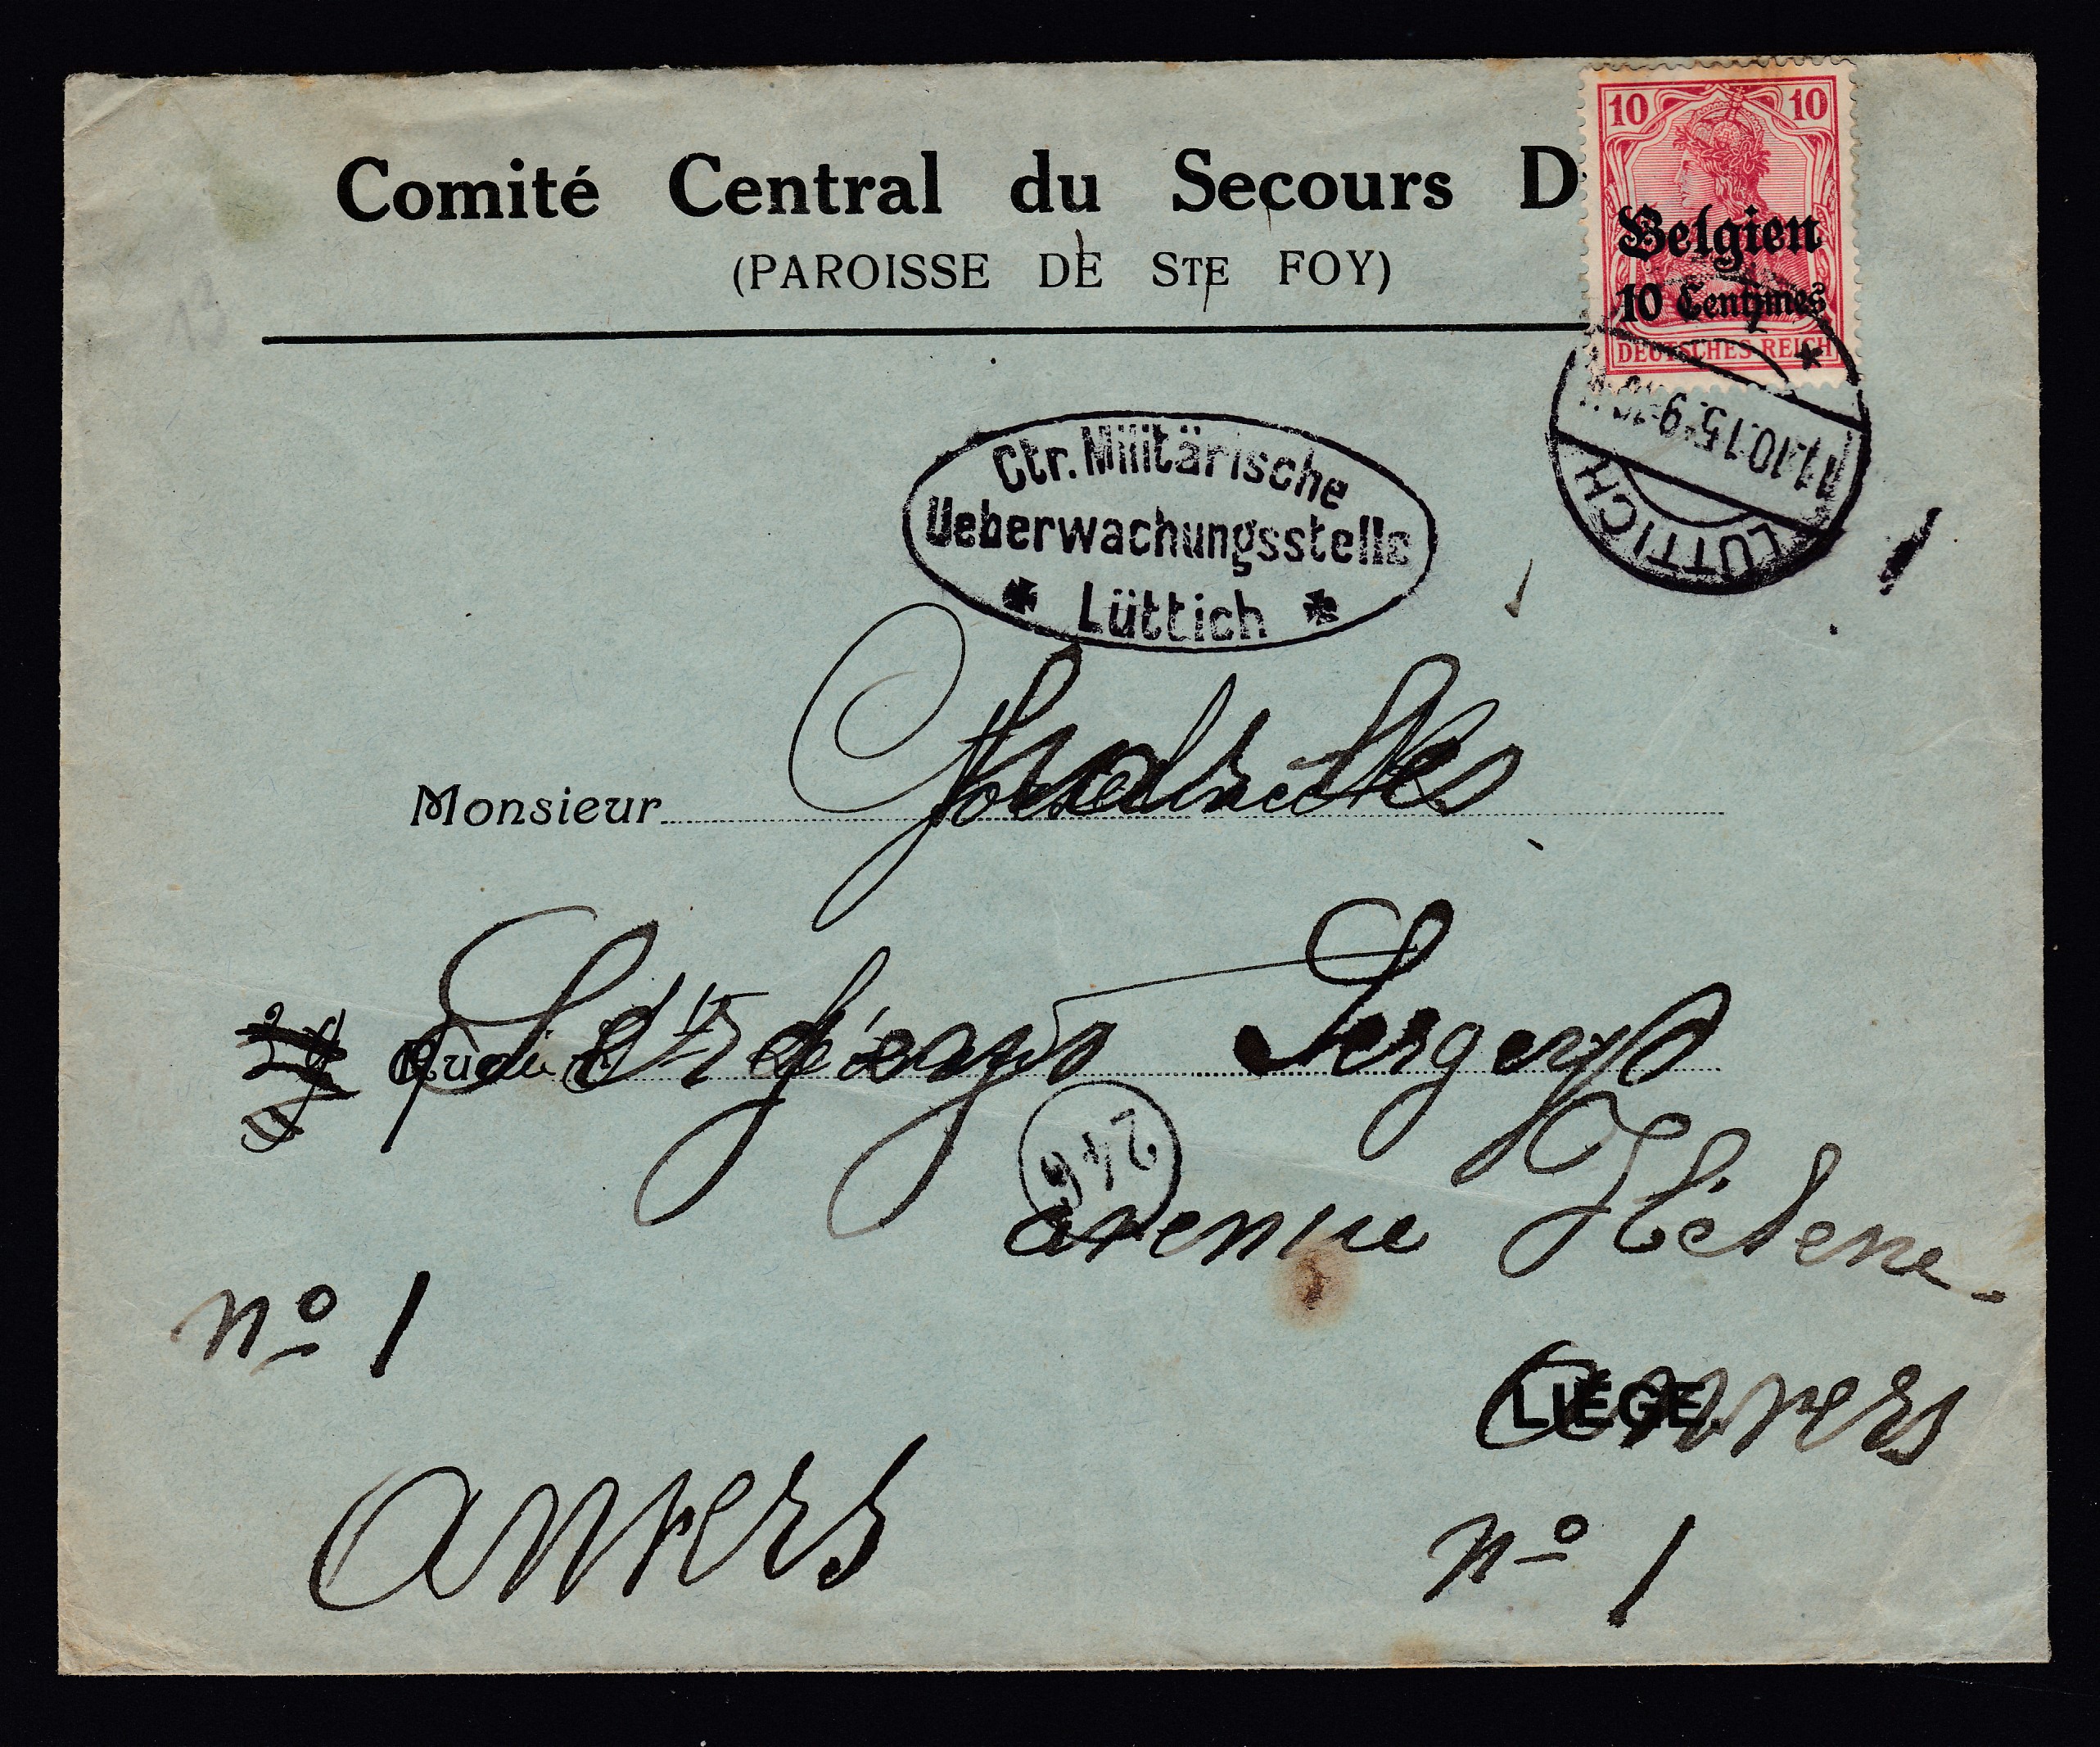 Comité Central du Secours D
(PAROISSE DE STE FOY)
10 10
Belgien
10 Centimes
DEUTSCHES REICH
11.10.15
LÜTTICH
Ctr. Militärische
Ueberwachungsstelle
* Lüttich *
Monsieur
246
avenue Hélène
nº 1
LIÉGE.
Anvers
Anvers
nº 1